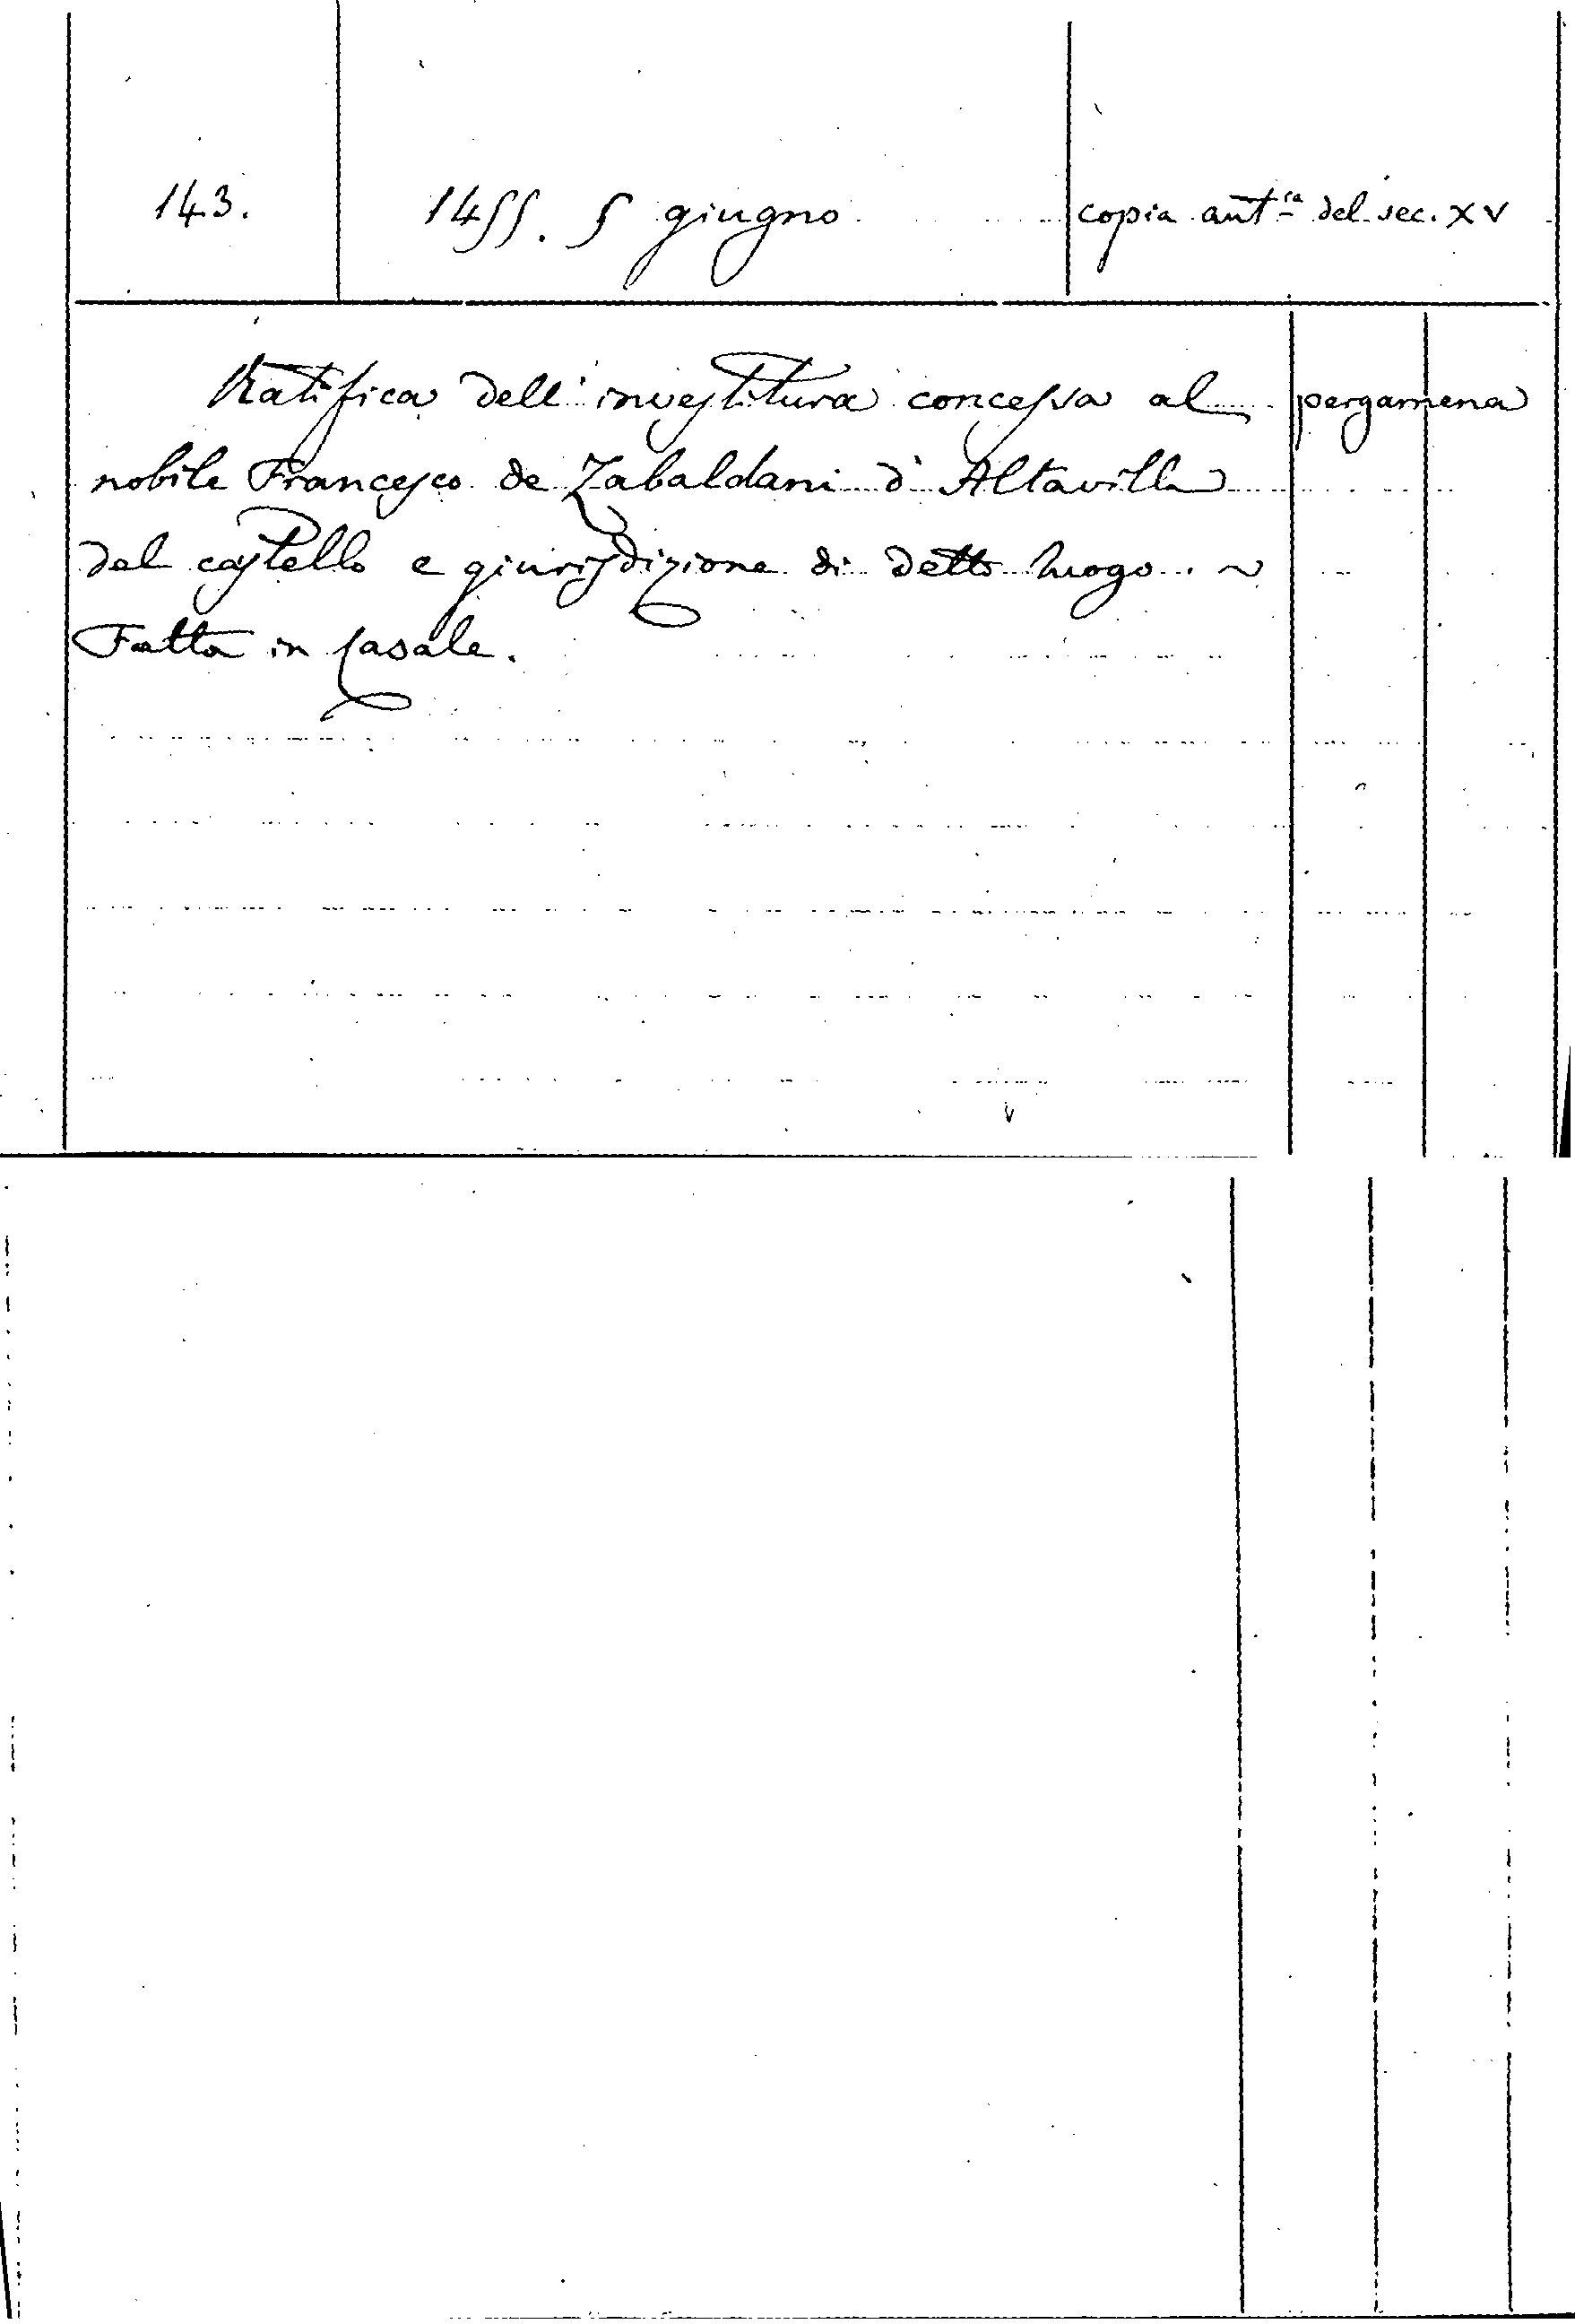 143.
1455. 5 giugno
copia aut.ca del sec. XV
Ratifica dell'investitura concessa al pergamena
nobile Francesco de Zabaldani d'Altavilla
del castello e giurisdizione di detto luogo. ~
Fatta in Casale.